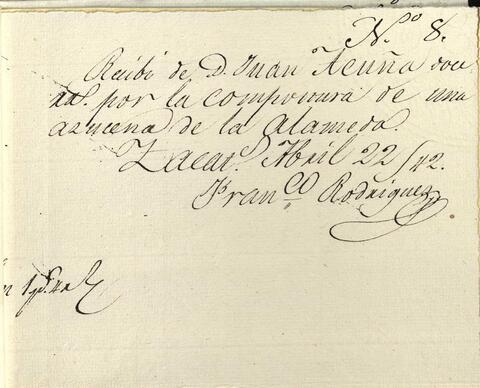 N.º 8.
Recibi de D. Juan Acuña doce
rr.s por la compostura de una
azucena de la Alameda.
Zacat.s Abril 22/42.
Fran.co Rodriguez
1 p.s 4 r